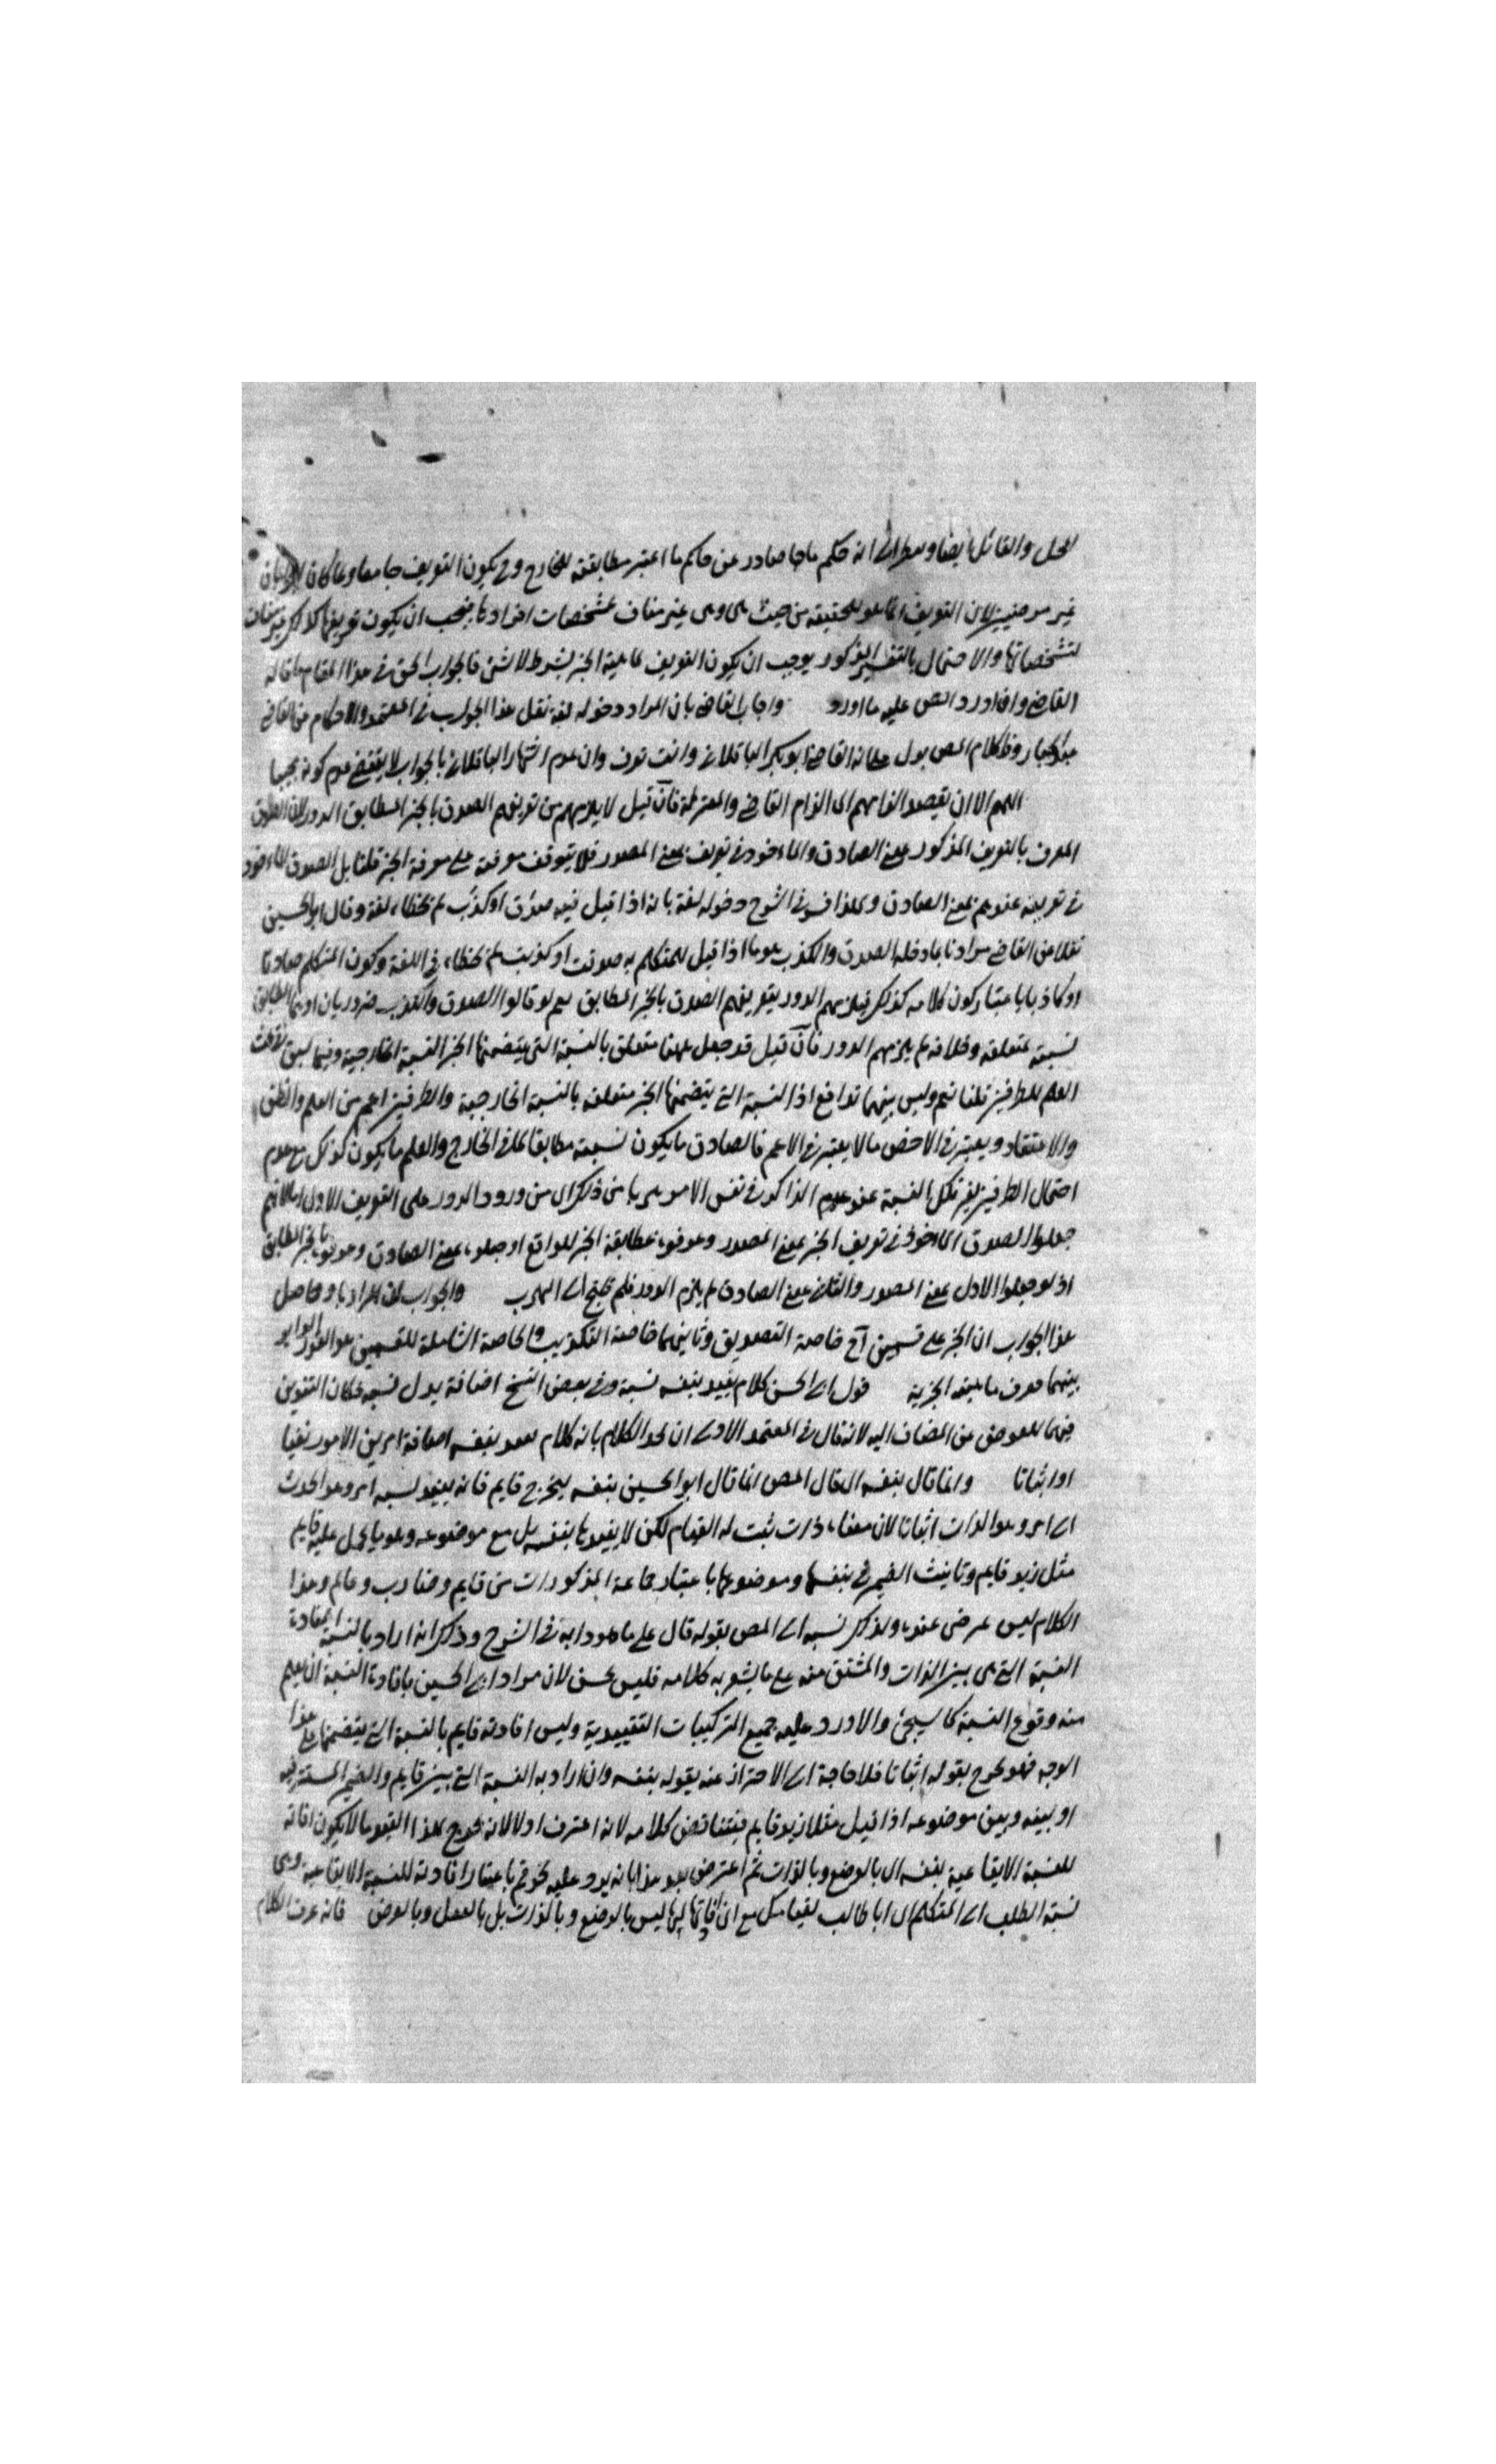 المحل والقائل ايضا وينظر الى انه حكم ما صادر عن حاكم ما اعتبر مطابقته للخارج وح يكون التعريف جامعا
غير مرضيين لان التعريف انما هو للحقيقة من حيث هي وهي غير مناف لمشخصات افرادها فيجب ان يكون تعريفها كذلك غير مناف
لتشخصاتها والاحتمال بالتفسير المذكور يوجب ان يكون التعريف لماهية الخبر بشرط لا شئ فالجواب الحق في هذا المقام ما قاله
القاضي واذا اورد المص عليه ما اورد واجاب القاضي بان المراد دخوله لغة نقل هذا الجواب في المعتمد والاحكام عن القاضي
عبد الجبار وظ كلام المص يدل على انه القاضي ابو بكر الباقلاني وانت تعرف وان عدم اشتهار الباقلاني بالجواب لا يقتضي عدم كونه مجيبا
اللهم الا ان يقصد الزامهم الى الزام القاضي والمعتزلة فان قيل لا يلزمهم من تعريفهم الصدق بالخبر المطابق الدور لان الصدق
المعرف بالتعريف المذكور بمعنى الصادق والماخوذ في تعريف بمعنى المصدر فلا يتوقف معرفته على معرفة الخبر قلنا بل الصدق الماخوذ
في تعريفه عندهم بمعنى الصادق ولهذا فسر في الشرح دخوله لغة بانه اذا قيل فيه صدق او كذب لم يخطاء لغة وقال ابو الحسين
نقلا عن القاضي مرادنا بما دخله الصدق والكذب هو ما اذا قيل للمتكلم به صدقت او كذبت لم يخطاء في اللغة وكون المتكلم صادقا
او كاذبا باعتبار كون كلامه كذلك فيلزمهم الدور بتعريفهم الصدق بالخبر المطابق نعم لو قالوا الصدق والكذب ضروريان او بما يطابق
نسبته متعلقه وخلافه لم يلزمهم الدور فان قيل قد جعل ههنا متعلق بالنسبة التي يتضمنها الخبر النسبة الخارجية وفيما سبق
العلم للطرفين قلنا نعم وليس بينهما تدافع اذ النسبة التي يتضمنها الخبر متعلقه بالنسبة الخارجية والطرفين اعم من العلم والظن
والاعتقاد ويعتبر في الاخص ما لا يعتبر في الاعم فالصادق ما يكون نسبته مطابقا لما في الخارج والعلم ما يكون كذلك مع عدم
احتمال الطرفين لغير تلك النسبة عند عدم الذاكر في نفس الامر هربا من ذلك اي من ورود الدور على التعريف الاول
جعلوا الصدق الماخوذ في تعريف الخبر بمعنى المصدر وعرفوه بمطابقة الخبر للواقع او جعلوه بمعنى الصادق وعرفوه بالخبر المطابق
اذ لو جعلوا الاول بمعنى المصدر والثاني بمعنى الصادق لم يلزم الدور فلم يحتج الى الهرب والجواب ان المراد ما وحاصل
هذا الجواب ان الخبر على قسمين آح خاصة التصديق وثانيهما خاصة التكذيب والخاصة الشاملة للقسمين هو القدر الدائر
بينهما معرف ماهيته الخبرية قول ابي الحسن كلام يفيد بنفسه نسبة وفي بعض النسخ اضافة بدل نسبة فكان التنوين
فيهما للعوض عن المضاف اليه لانه قال في المعتمد الاولى ان يحد الكلام بانه كلام يفيد بنفسه اضافة امر من الامور نفيا
او اثباتا وانما قال بنفسه اي قال المص انما قال ابو الحسين بنفسه ليخرج قايم فانه يفيد نسبه امر وهو الحدث
الى امر وهو الذات اثباتا لان معناه ذات ثبت له القيام لكن لا يفيدها بنفسه بل مع موضوعه وهو ما يحمل عليه قايم
مثل زيد قايم وتانيث الضمير في بنفسها وموضوعها باعتبار جماعة المذكورات من قايم وضارب وعالم وهذا
الكلام ليس بمرضي عنده ولذلك نسبه الى المص بقوله قال على ما هو دابه في الشرح وذكر انه اراد بالنسبة المفادة
النسبة التي هي بين الذات والمشتق منه على ما يشعر به كلامه فليس بحسن لان مراد ابي الحسين بافادة النسبة ان يعلم
منه وقوع النسبة كما سيجئ والا ورد عليه جميع التركيبات التقييدية وليس افادته قايم بالنسبة التي يتضمنها على هذا
الوجه فهو يخرج بقوله اثباتا فلا حاجة الى الاحتراز عنه بقوله بنفسه وان اراد به النسبة التي بين قايم والضمير المستتر فيه
او بينه وبين موضوعه اذا قيل مثلا زيد قايم فيتناقض كلامه لانه اعترف اولا لانه يخرج بهذا القيد ما لا يكون افادته
للنسبة الايقاعية بنفسه اي بالوضع وبالذات ثم اعترض بعد هذا بانه يرد عليه نحو قم باعتبار افادته للنسبة الايقاعية وهي
نسبة الطلب الى المتكلم مع ان افادتها اياها ليس بالوضع وبالذات بل بالعقل وبالعرض فانه عرف الكلام